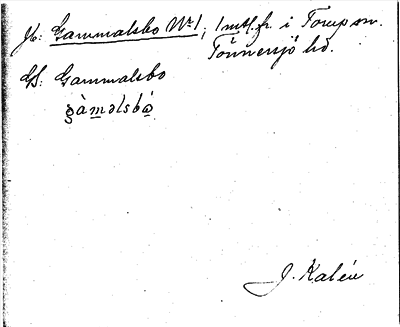 Jb: Gammalsbo Nr 1, 1 mtl. fr. i Torup sn.
Tönnersjö hd.
Gs: Gammalsbo
gàmalsbó
J. Kalén